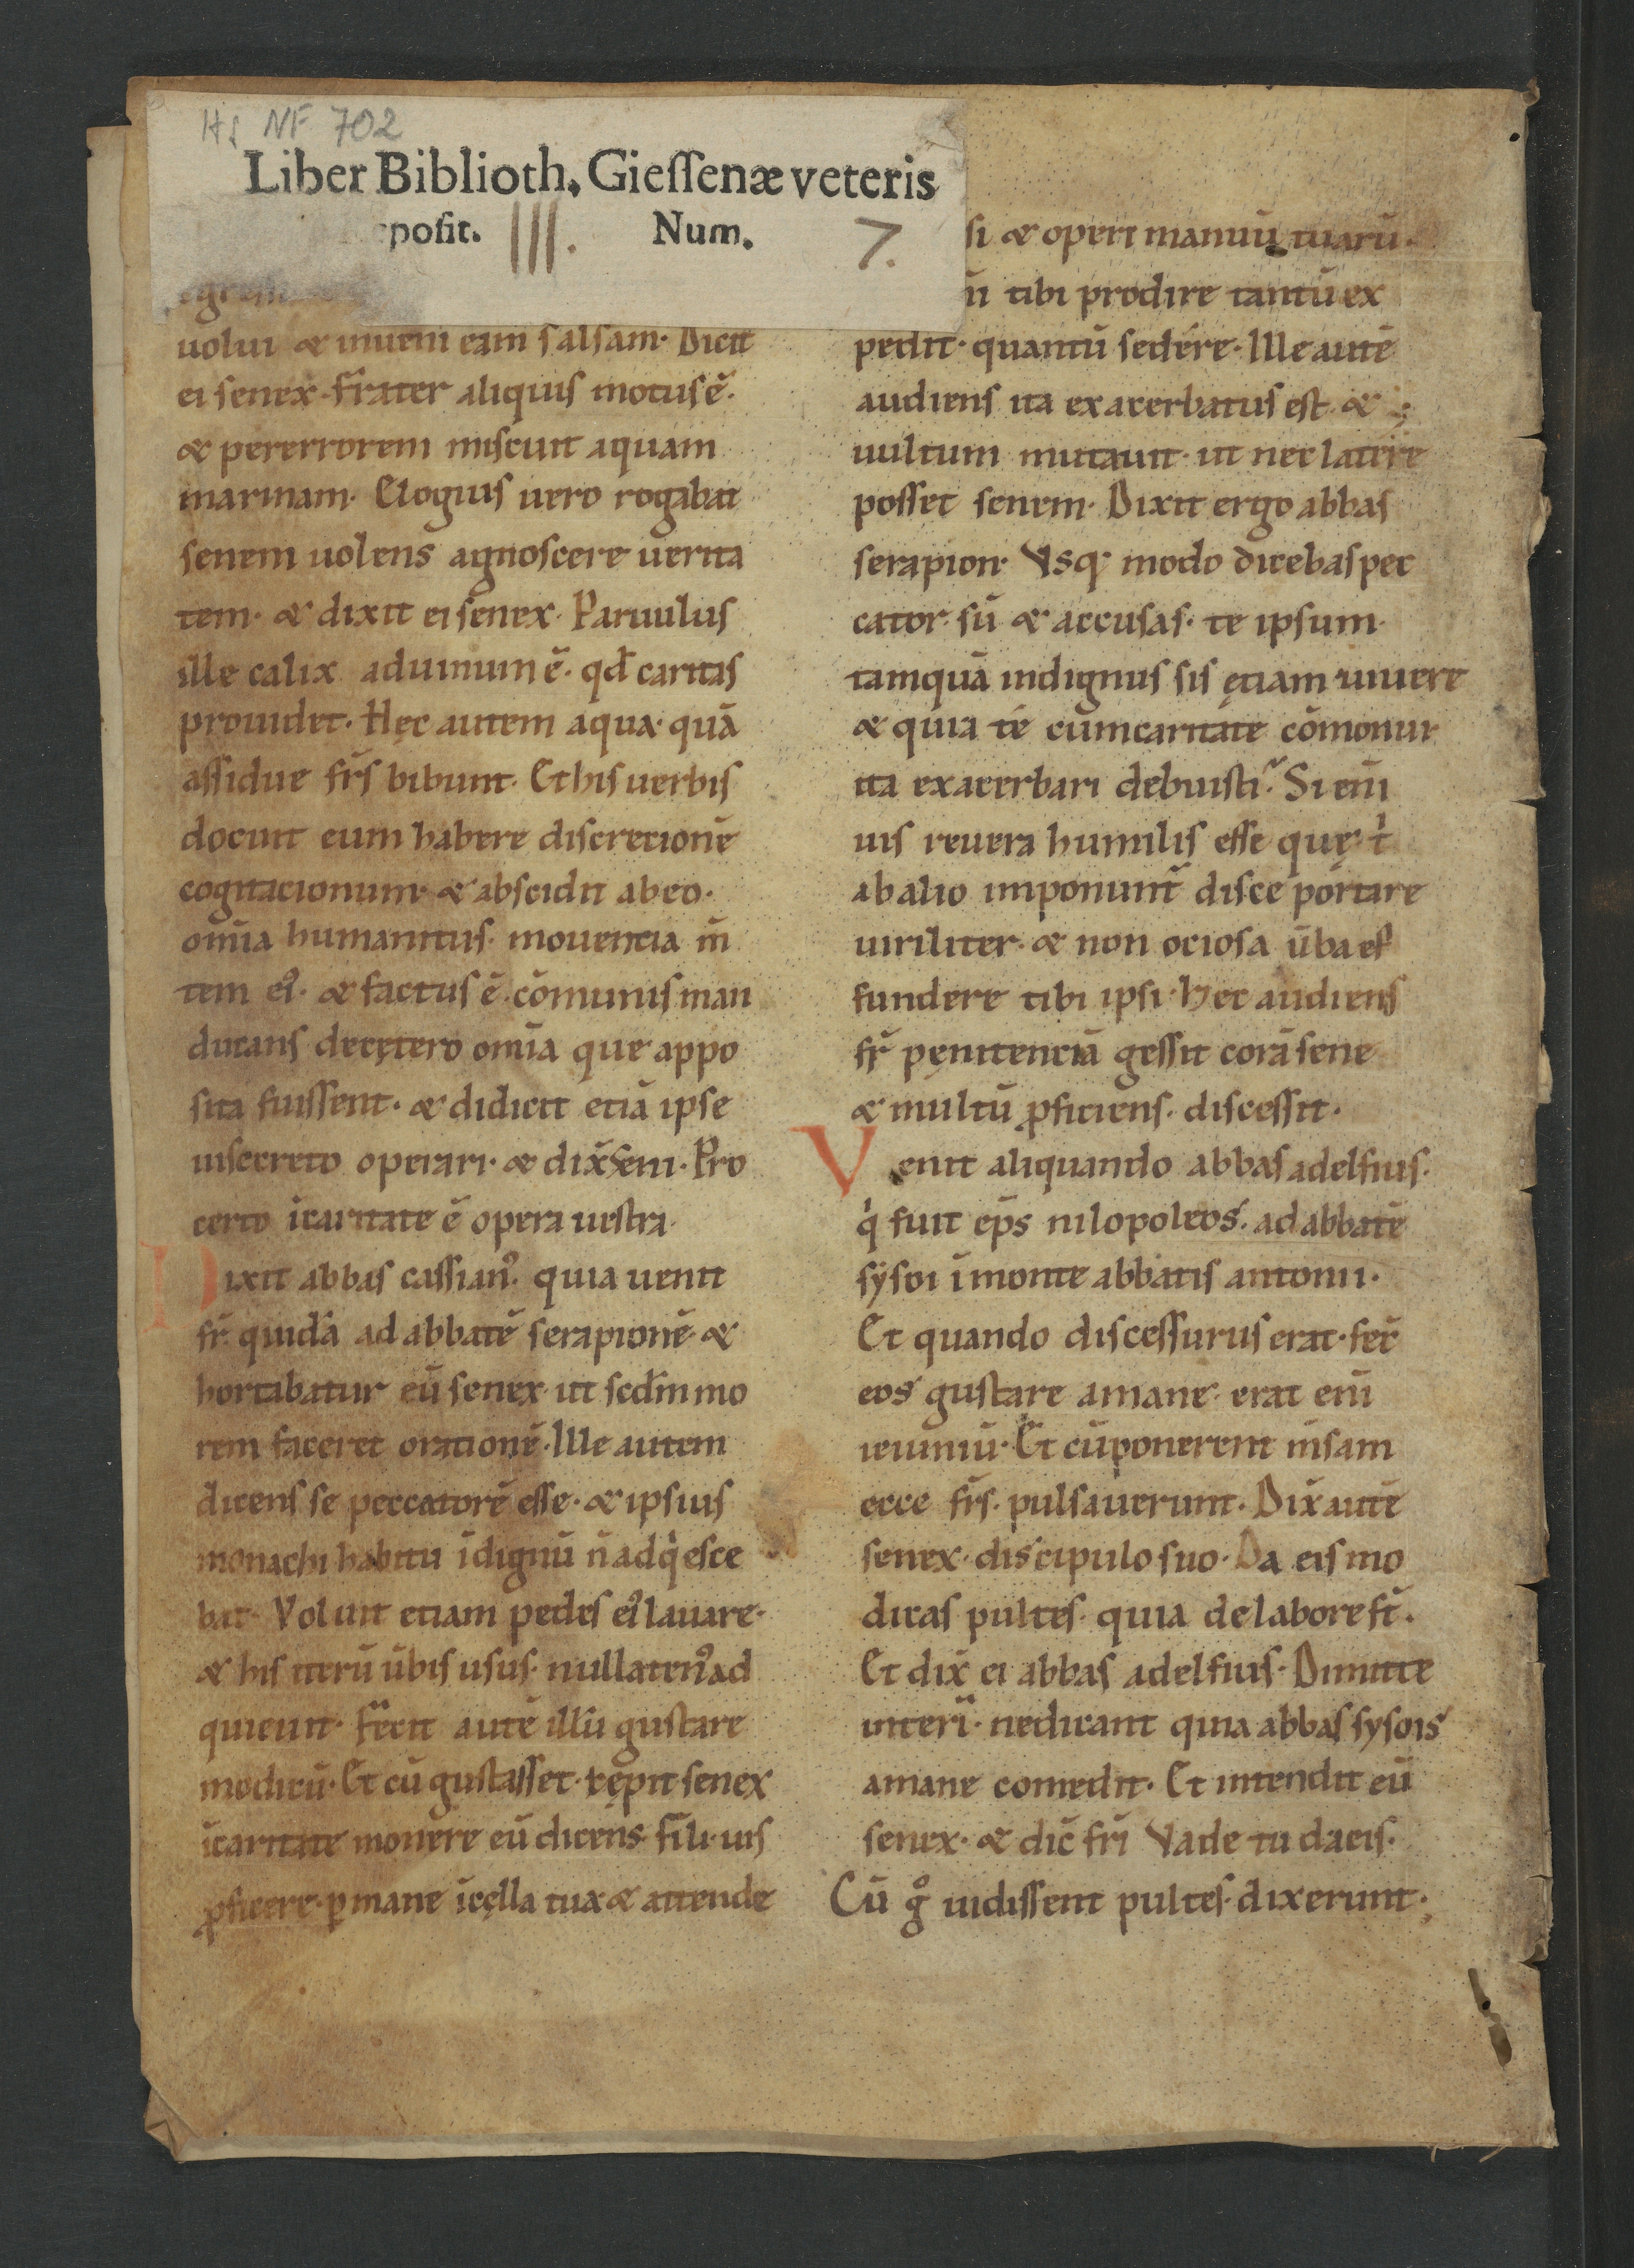 Hs NF 702
Liber Biblioth. Giessenæ veteris
posit. III. Num. 7.
uolui & inueni eam salsam. Dicit
ei senex. Frater aliquis motus ē.
& pererrorem miscuit aquam
marinam. Elogius uero rogabat
senem uolens agnoscere uerita
tem. & dixit ei senex. Paruulus
ille calix aduinum ē. qđ caritas
prouidet. Hęc autem aqua quā
assidue fr̄s bibunt. Et his uerbis
docuit eum habere discretionē
cogitacionum. & abscidit abeo.
om̄ia humanitus mouencia m̄
tem ei᾽. & factus ē. cōmunis man
ducans decętero om̄ia que appo
sita fuissent. & didicit etiā ipse
insecreto operari. & dix̄ seni. Pro
certo īcaritate ē opera uestra.
Dixit abbas cassian᾽. quia uenit
fr̄ quidā ad abbatē serapionē. &
hortabatur eū senex. ut sedm̄ mo
rem faceret orationē. Ille autem
dicens se peccatorē esse. & ipsius
monachi habitu īdignū n̄ adq̇esce
bat. Voluit etiam pedes ei᾽ lauare.
& his iterū ūbis usus. nullaten᾽ ad
quieuit. Fecit autē illū gustare
modicū. Et cū gustasset. cępit senex
īcaritate monere eū dicens. fili. uis
ꝓficere. ꝑmane īcęlla tua & attende
si & operi manuū tuarū.
n̄ tibi prodire tantū ex
pedit. quantū sedére. Ille autē
audiens ita exacerbatus est. &
uultum mutauit. ut nec latére
posset senem. Dixit ergo abbas
serapion. Vsq; modo dicebas pec
cator sū & accusas. te ipsum.
tamquā indignus sis ętiam uiuere
& quia té cumcaritate cōmonui
ita exacerbari debuisti. Si eni̅
uis reuera humilis esse quę t̍
abalio imponunt̄ disce pórtare
uiriliter. & non ociosa ūba ef
fundere tibi ipsi. Hec audiens
fr̄ pęnitenciā gessit corā sene
& multū ꝓficiens. discessit.
Venit aliquando abbas adelfius.
q̇ fuit ep̄s nilopoleos. ad abbatē
sysoi īmonte abbatis antonii.
Et quando discessurus erat. fec̄
eos gustare amane. erat eni̅
ieiuniū. Et cūponerent m̄sam
ecce fr̄s. pulsauerunt. Dix̄ autē
senex. discipulo suo. Da eis mo
dicas pultes. quia delabore st̄.
Et dix̄ ei abbas adelfius. Dimitte
interī. nedicant quia abbas sysois
amane comedit. Et intendit eū
senex. & dic̄ fr̄i Vade tu da eis.
Cū g̊ uidissent pultes. dixerunt.